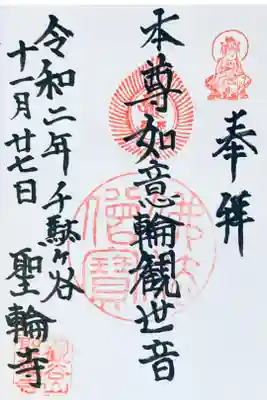 奉拝
本尊如意輪観世音
佛法僧寶
千駄ヶ谷 聖輪寺
令和二年
十一月廿七日